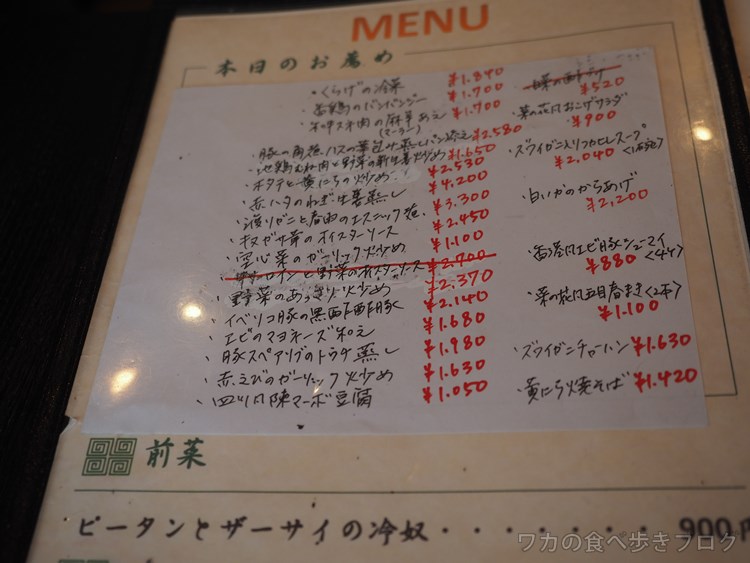 MENU
本日のお薦め
・くらげの冷菜 ¥1.840
・蒸鶏のバンバンジー ¥1.700
¥1.700
(マーラー)
・豚の角煮、ハスの葉包み蒸しパン添え ¥2.580
・地鶏むね肉と野菜の新生姜炒め ¥1.650
・ホタテと黄にらの炒め ¥2.530
・赤ハタのねぎ生姜蒸し ¥4.200
・渡りガニと春雨のエスニック煮 ¥3.300
・キヌガサ茸のオイスターソース ¥2.450
・空心菜のガーリック炒め ¥1.100
・牛サーロインと野菜のオイスターソース ¥2.700
・野菜のあっさり炒め ¥2.370
・イベリコ豚の黒酢酢豚 ¥2.140
・エビのマヨネーズ和え ¥1.680
・豚スペアリブのトウチ蒸し ¥1.980
・赤えびのガーリック炒め ¥1.630
・四川風陳マーボ豆腐 ¥1.050
¥520
・菜の花風おこげサラダ
¥900
・ズワイガニ入りフカヒレスープ
¥2,040
・白いかのからあげ
¥2,200
・香港風エビ豚シューマイ
¥880 <4ケ>
・菜の花風五目春まき<2本>
¥1.100
・ズワイガニチャーハン ¥1.630
・黄にら焼そば ¥1.420
前菜
ピータンとザーサイの冷奴・・・・・・・900円
ワカの食べ歩きブログ